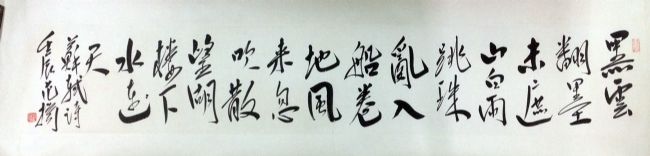 黑雲
翻墨
未遮
山白雨
跳珠
亂入
船卷
地風
来忽
吹散
望湖
楼下
水如
天
蘇軾詩
壬辰